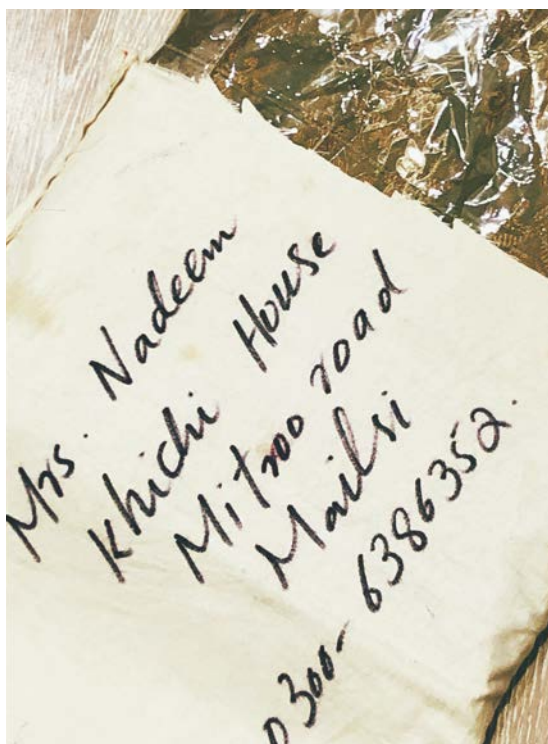 Mrs. Nadeem
Khichi House
Mitroo road
Mailsi
0300- 6386352.